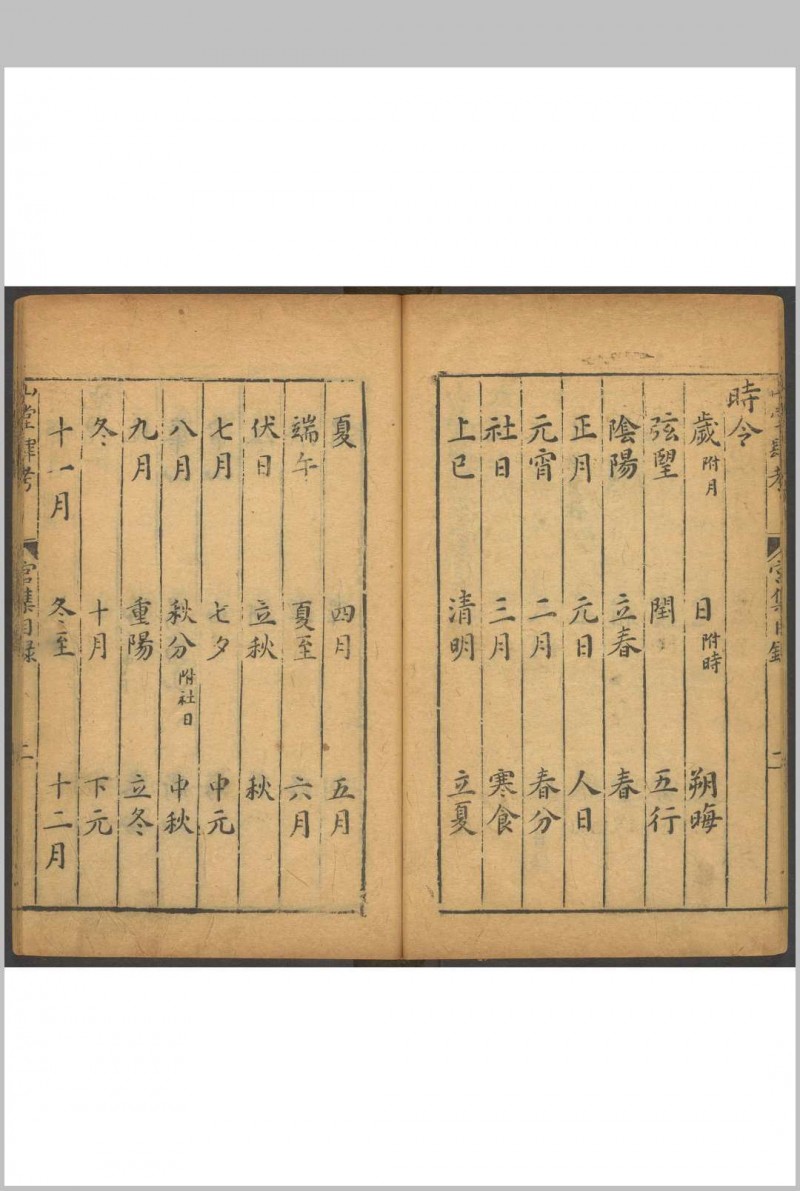 時令
歲附月 日附時 朔晦
弦望 閏 五行
陰陽 立春 春
正月 元日 人日
元宵 二月 春分
社日 三月 寒食
上巳 清明 立夏
夏 四月 五月
端午 夏至 六月
伏日 立秋 秋
七月 七夕 中元
八月 秋分附社日 中秋
九月 重陽 立冬
冬 十月 下元
十一月 冬至 十二月
堂肆考 宮集目錄 二